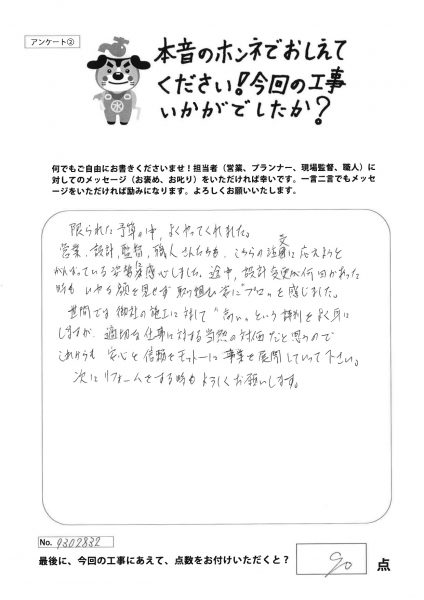 アンケート②
本音のホンネでおしえて
ください!今回の工事
いかがでしたか?
何でもご自由にお書きくださいませ!担当者(営業、プランナー、現場監督、職人)に
対してのメッセージ(お褒め、お叱り)をいただければ幸いです。一言二言でもメッセ
ージをいただければ励みになります。よろしくお願いいたします。
限られた予算の中、よくやってくれました。
営業、設計、監督、職人さんたちも、こちらの注文に応えようと
がんばっている姿勢に感心しました。途中、設計変更が何回かあった
時も いやな顔を見せず 取り組む姿に"プロ"を感じました。
世間では御社の施工に対して"高い"という評判をよく耳に
しますが、適切な仕事に対する当然の対価だと思うので
これからも 安心と信頼をモットーに事業を展開していって下さい。
次にリフォームをする時もよろしくお願いします。
No. 9302832
最後に、今回の工事にあえて、点数をお付けいただくと? 90 点